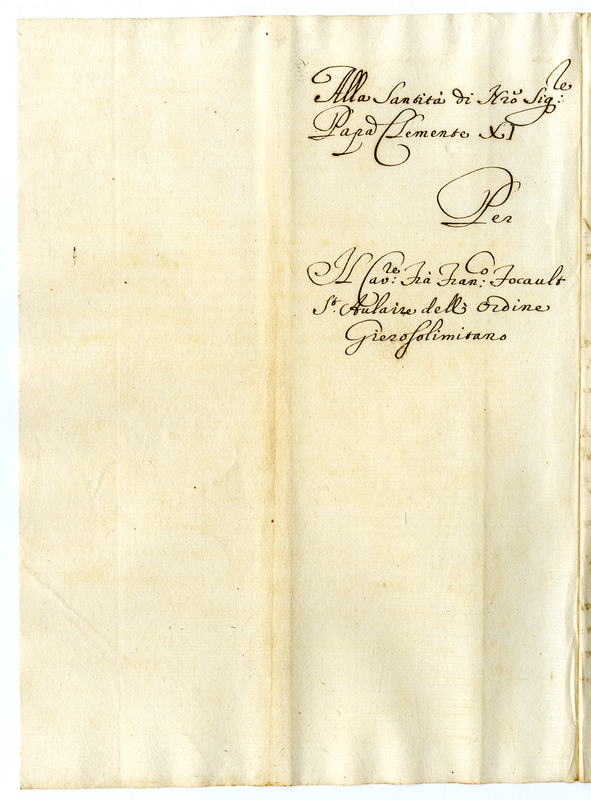 Alla Santità di Nrõ Sig:re
Papa Clemente XI
Per
Il Cav:re Frà Fran:co Focault
St. Aulaire dell' Ordine
Gierosolimitano